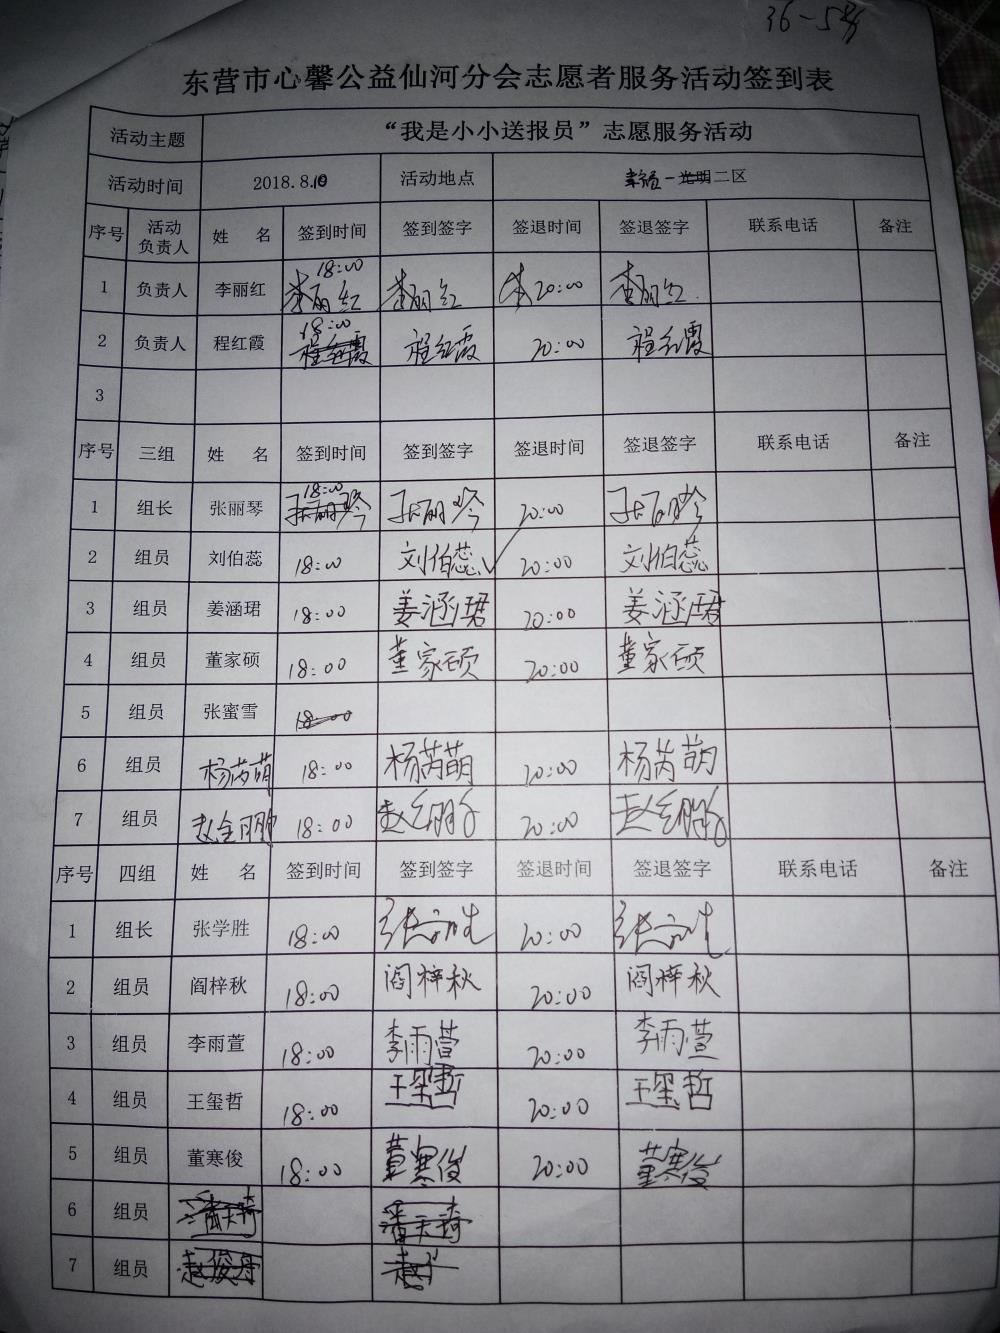 36-5
东营市心馨公益仙河分会志愿者服务活动签到表
活动主题 “我是小小送报员”志愿服务活动
活动时间 2018.8.10 活动地点 幸福一光明二区
序号 活动负责人 姓 名 签到时间 签到签字 签退时间 签退签字 联系电话 备注
1 负责人 李丽红 18:00 李丽红 李丽红 李 20:00 李丽红
2 负责人 程红霞 18:00 程红霞 程红霞 20:00 程红霞
3
序号 三组 姓 名 签到时间 签到签字 签退时间 签退签字 联系电话 备注
1 组长 张丽琴 18:00 张丽琴 张丽琴 20:00 张丽琴
2 组员 刘伯蕊 18:00 刘伯蕊 20:00 刘伯蕊
3 组员 姜涵珺 18:00 姜涵珺 20:00 姜涵珺
4 组员 董家硕 18:00 董家硕 20:00 董家硕
5 组员 张蜜雪 18:00
6 组员 杨芮萌 18:00 杨芮萌 20:00 杨芮萌
7 组员 18:00 20:00
序号 四组 姓 名 签到时间 签到签字 签退时间 签退签字 联系电话 备注
1 组长 张学胜 18:00 张学胜 20:00 张学胜
2 组员 阎梓秋 18:00 阎梓秋 20:00 阎梓秋
3 组员 李雨萱 18:00 李雨萱 20:00 李雨萱
4 组员 王玺哲 18:00 王玺哲 20:00 王玺哲
5 组员 董寒俊 18:00 董寒俊 20:00 董寒俊
6 组员 潘天琦 潘天琦
7 组员 赵俊丹 赵